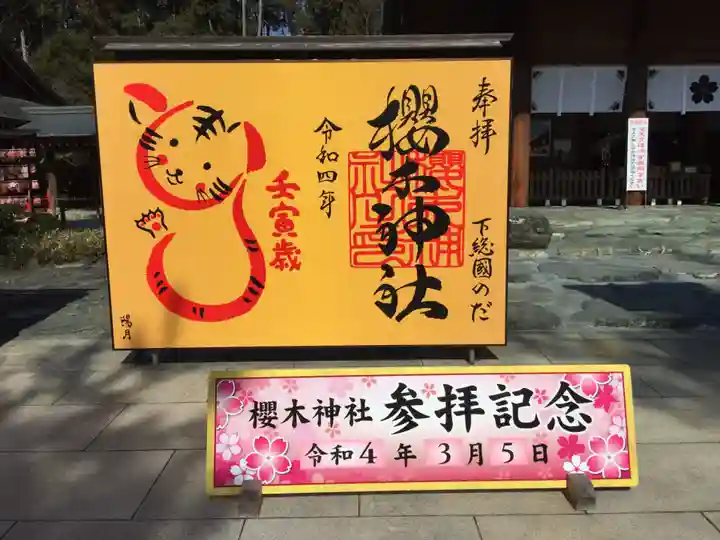 奉拝
櫻木神社
下総國のだ
令和四年
壬寅歳
陽月
櫻木神社 参拝記念
令和4年3月5日